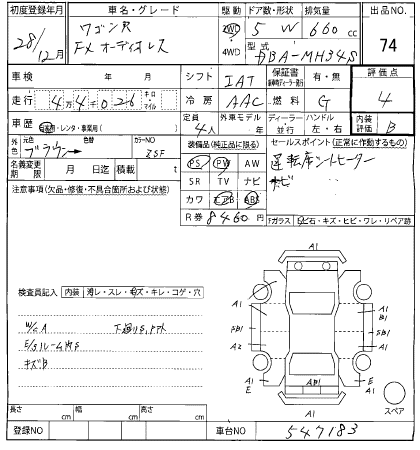 初度登録年月
車名・グレード
駆動
ドア数・形状
排気量
出品NO.
28/12月
ワゴンR
FX オーディオレス
2WD
4WD
5 W
660 cc
型式
DBA-MH34S
74
車検 年 月
シフト
IAT
保証書
有・無
評価点
4
走行
4万4千026
キロ・マイル
冷房
AAC
燃料
G
車歴
自家用・レンタ・事業用( )
定員
4人
外車モデル
年
ディーラー
並行
ハンドル
左・右
内装評価
B
外色
元色
ブラウン
色替
カラーNO
ZSF
装備品(純正品に限る)
PS PW AW
SR TV ナビ
カワ エアB ABS
セールスポイント(正常に作動するもの)
運転席シートヒーター
ナビ
名義変更期限
月 日
積載 t
R券
8460円
Fガラス
ヒ石・キズ・ヒビ・ワレ・リペア跡
注意事項(欠品・修復・不具合箇所および状態)
検査員記入
内装
汚レ・スレ・キズ・キレ・コゲ・穴
W/C A
下廻りS,
E/Sルーム内S
キズB
A1
A1
A1
SB1
SB1
A2
A1
A1
E
AB1
E
A1
A1
スペア
長さ cm
幅 cm
高さ cm
登録NO
車台NO
547183